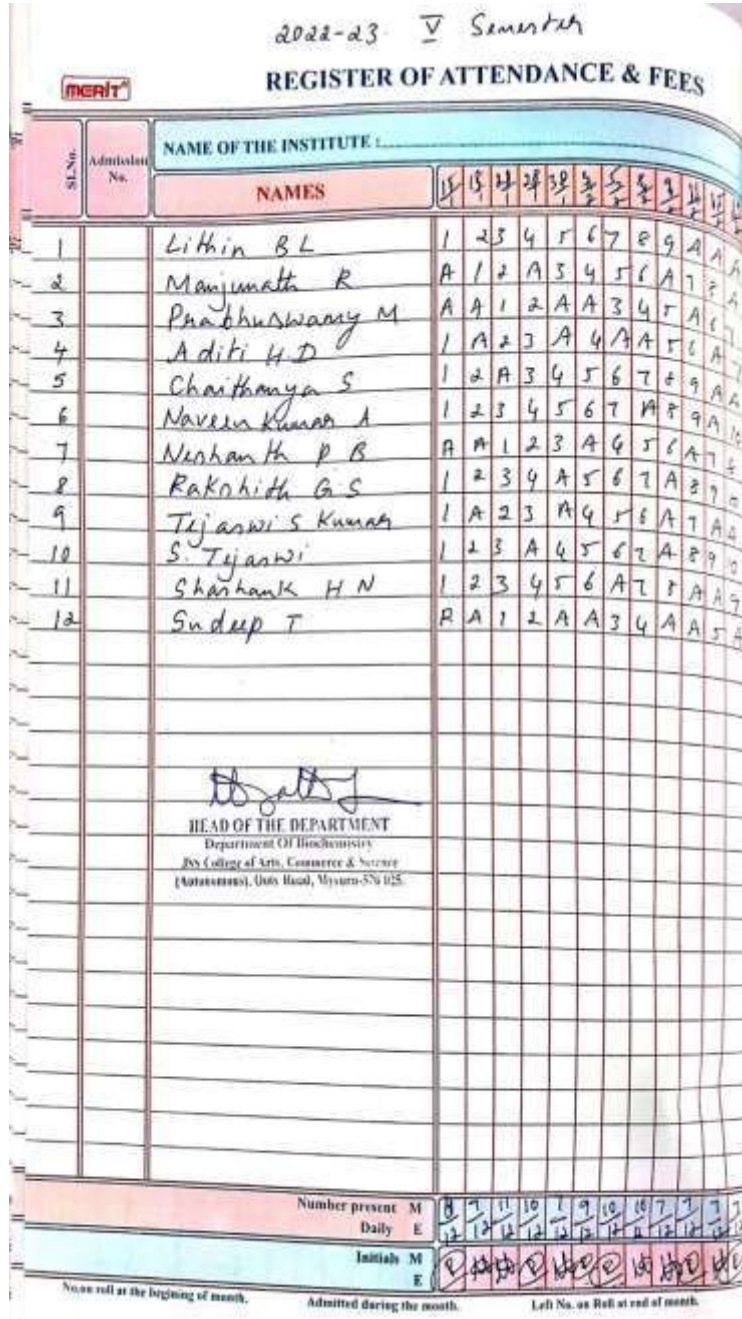 2022-23 V Semester
MERIT
REGISTER OF ATTENDANCE & FEES
Sl.No.
Admission No.
NAME OF THE INSTITUTE :
NAMES
1 Lithin B L 1 2 3 4 5 6 7 8 9 A A A
2 Manjunath R A 1 2 A 3 4 5 6 A 7 8 A
3 Prabhuswamy M A A 1 2 A A 3 4 5 A 6 7
4 Aditi H D 1 A 2 3 A 4 A A 5 6 A 7
5 Chaithanya S 1 2 A 3 4 5 6 7 8 9 A A
6 Naveen Kumar A 1 2 3 4 5 6 7 A 8 9 A 10
7 Nishanth P B A A 1 2 3 A 4 5 6 A 7 8
8 Rakshith G S 1 2 3 4 A 5 6 7 A 8 9 10
9 Tejaswi S Kumar 1 A 2 3 A 4 5 6 A 7 A A
10 S. Tejaswi 1 2 3 A 4 5 6 7 A 8 9 10
11 Shashank H N 1 2 3 4 5 6 A 7 8 A A 9
12 Sudeep T A A 1 2 A A 3 4 A A 5 A
HEAD OF THE DEPARTMENT
Department Of Biochemistry
JSS College of Arts, Commerce & Science
(Autonomous), Ooty Road, Mysuru-570 025.
Number present M
Daily E
Initials M
E
No. on roll at the begining of month.
Admitted during the month.
Left No. on Roll at end of month.